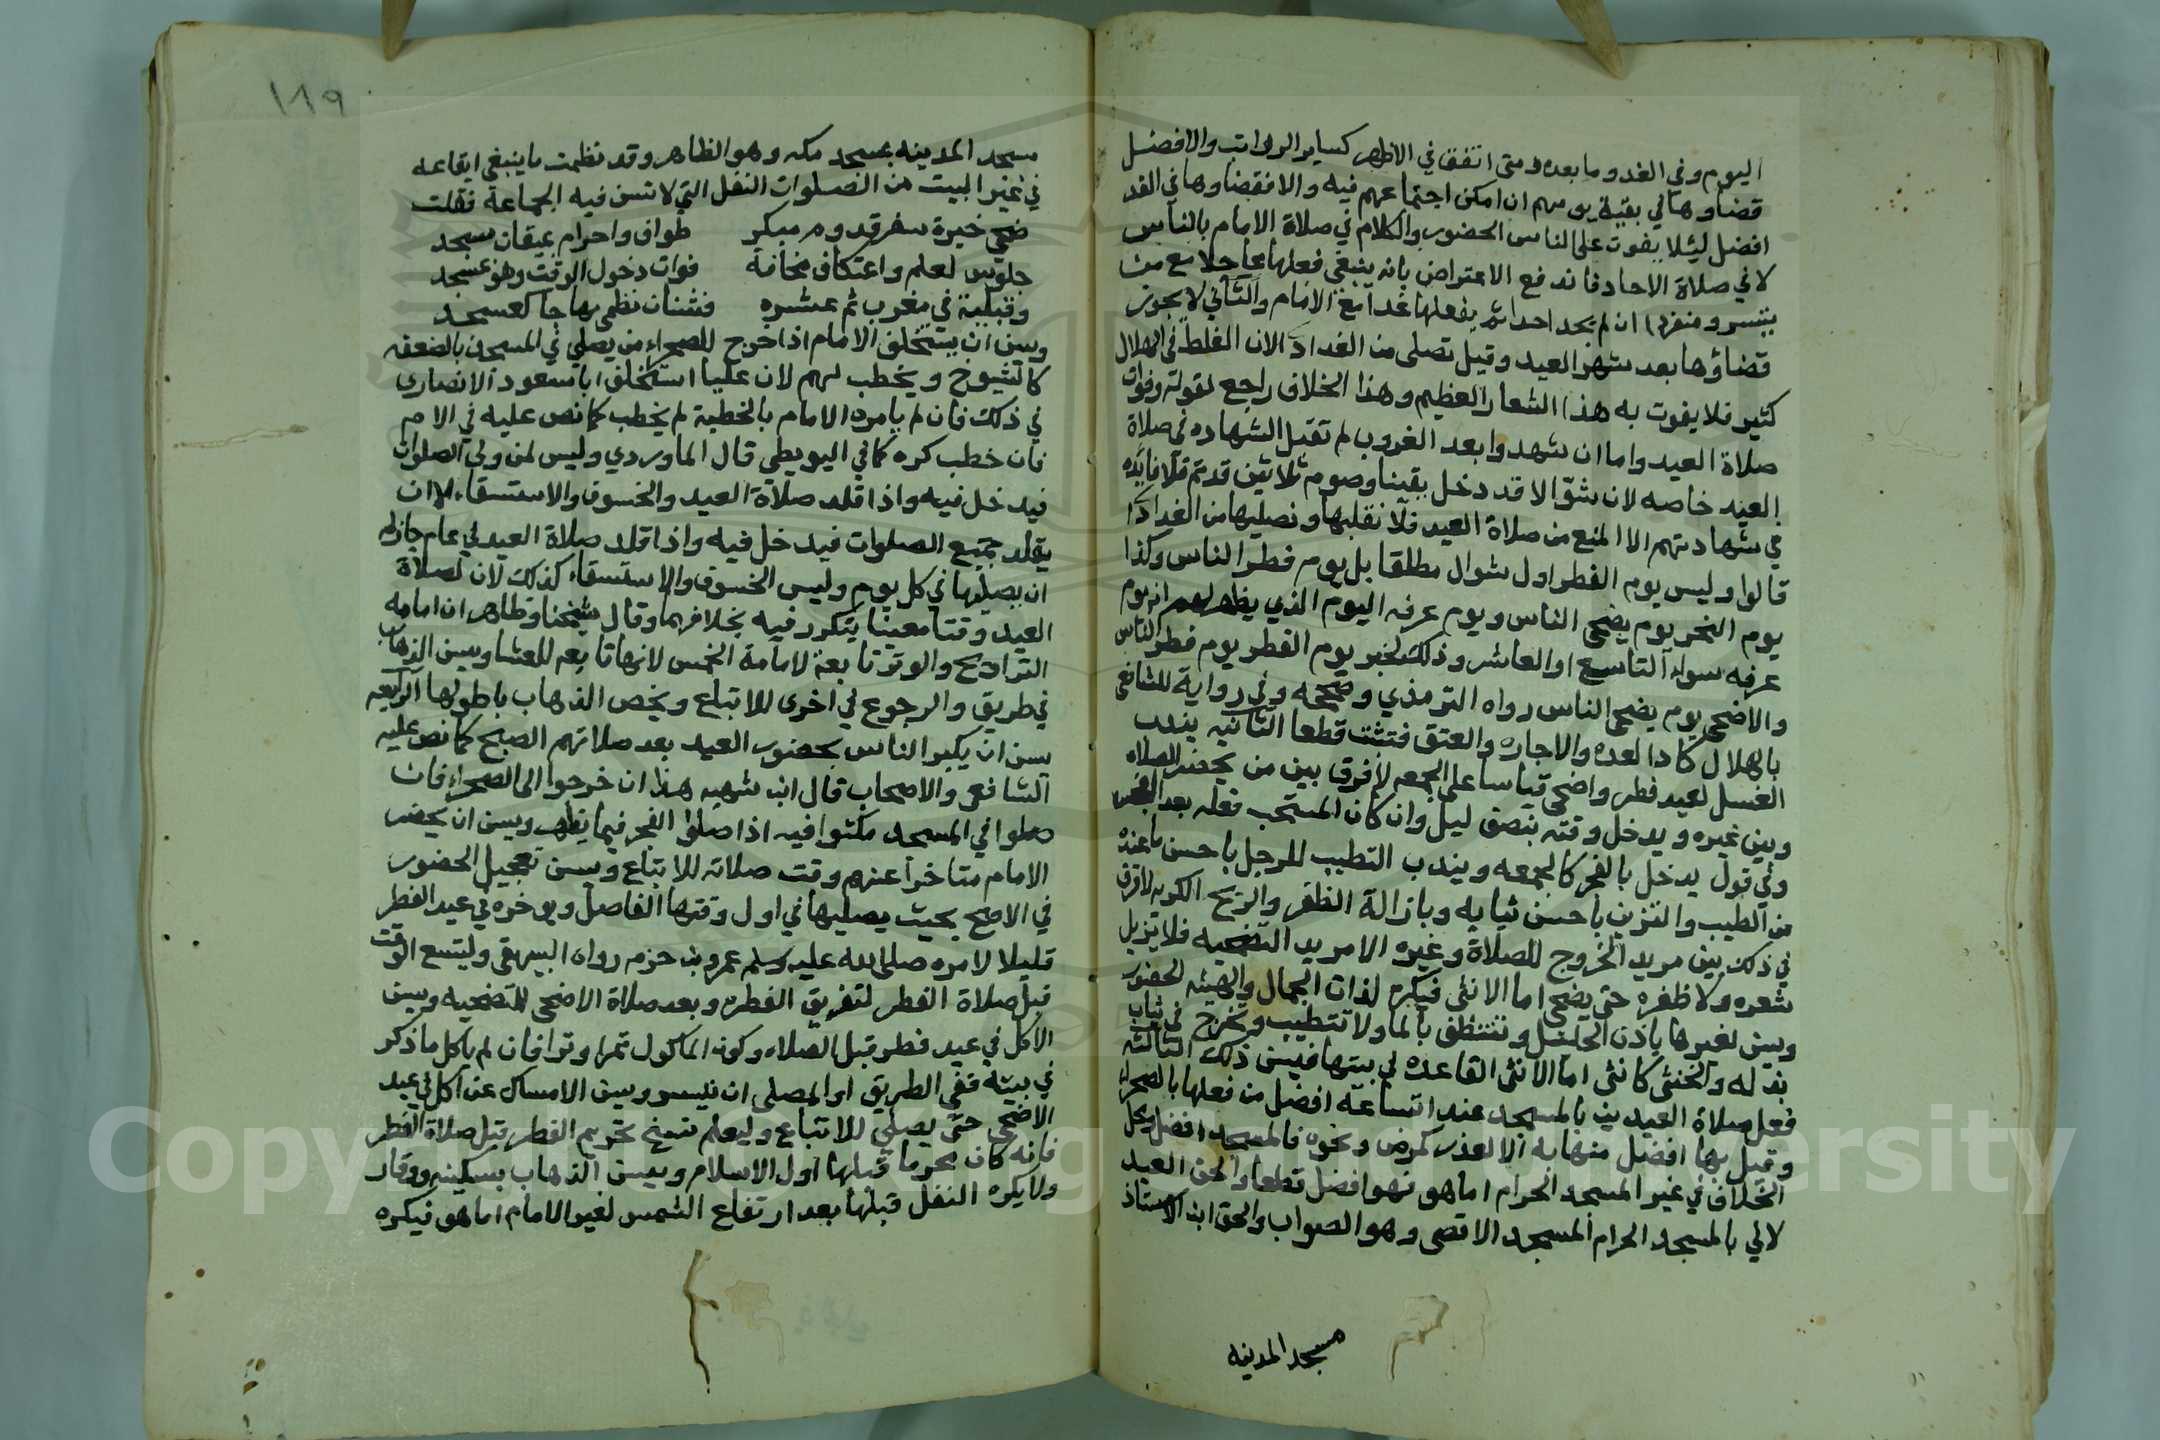 اليوم وفي الغد وما بعده ومتى اتفق في الاظهر كساير الرواتب والافضل
قضاوها في بقية يومهم ان امكن اجتماعهم فيه والا فقضاوها في الغد
افضل ليئلا يفوت على الناس الحضور والكلام في صلاة الامام بالناس
لا في صلاة الاحاد فاندفع الاعتراض بانه ينبغي فعلها عاجلا مع من
يتيسر ومنفردا ان لم يجد احدا ثم يفعلها غدا مع الامام والثاني لا يجوز
قضاؤها بعد شهر العيد وقيل تصلى من الغد اداء لان الغلط في الهلال
كثير فلا يفوت به هذا الشعار العظيم وهذا الخلاف راجع لقوله وفوات
صلاة العيد واما ان شهدوا بعد الغروب لم تقبل الشهاده في صلاة
العيد خاصه لان شوالا قد دخل يقينا وصوم ثلاثين قد تم فلا فايده
في شهادتهم الا المنع من صلاة العيد فلا نقبلها ونصليها من الغد اداء
قالوا وليس يوم الفطر اول شوال مطلقا بل يوم فطر الناس وكذا
يوم النحر يوم يضحي الناس ويوم عرفه اليوم الذي يظهر لهم انه يوم
عرفه سواء التاسع او العاشر وذلك لخبر يوم الفطر يوم فطر الناس
والاضحى يوم يضحي الناس رواه الترمذي وصححه وفي رواية للشافعي
بالهلال كاداء العده والاجاره والعتق فتثبت قطعا الثانيه يندب
الغسل لعيد فطر واضحى قياسا على الجمعه لا فرق بين من يحضر الصلاه
وبين غيره ويدخل وقته بنصف ليل وان كان المستحب فعله بعد الفجر
وفي قول يدخل بالفجر كالجمعه ويندب التطيب للرجل باحسن ما عنده
من الطيب والتزين باحسن ثيابه وبازالة الظفر والريح الكريه لا فرق
في ذلك بين مريد الخروج للصلاة وغيره الا مريد التضحيه فلا يزيل
شعره ولا ظفره حتى يضحي اما الانثى فيكره لذات الجمال والهيئه الحضور
ويسن لغيرها باذن الحليل وتتنظف بالماء ولا تتطيب وتخرج في ثياب
بذله والخنثى كانثى اما الانثى القاعده في بيتها فيسن ذلك الثالثه
فعل صلاة العيدين بالمسجد عند اتساعه افضل من فعلها بالصحراء
وقيل بها افضل منها به الا لعذر كمرض ونحوه فالمسجد افضل محل
الخلاف في غير المسجد الحرام اما هو فهو افضل قطعا والحق العيد
لاني بالمسجد الحرام المسجد الاقصى وهو الصواب والحق ابن الاستاذ
مسجد المدينه
١٨٩
مسجد المدينه بمسجد مكه وهو الظاهر وقد نظمت ما ينبغي ايقاعه
في غير البيت من الصلوات النفل التي لا تسن فيه الجماعة فقلت
ضحى خيرة سفر قدوم مبكر طواف واحرام بميقان مسجد
جلوس لعلم واعتكاف مخافة فوات دخول الوقت وهو بمسجد
وقبلية في مغرب ثم عشره فثنان نظمي بها جا كعسجد
ويسن ان يستخلف الامام اذا خرج للصحراء من يصلي في المسجد بالضعفه
كالشيوخ ويخطب لهم لان عليا استخلف ابا مسعود الانصاري
في ذلك فان لم يامره الامام بالخطبة لم يخطب كما نص عليه في الام
فان خطب كره كما في البويطي قال الماوردي وليس لمن ولي الصلوات
فيدخل فيه واذا قلد صلاة العيد والخسوف والاستسقاء الا ان
يقلد جميع الصلوات فيدخل فيه واذا قلد صلاة العيد في عام جاز له
ان يصليها في كل يوم وليس الخسوف والاستسقاء كذلك لان لصلاة
العيد وقتا معينا يتكرر فيه بخلافهما وقال شيخنا وظاهر ان امامه
التراويح والوتر تابعة لامامة الخمس لانها تابعه للعشا ويسن الذهاب
في طريق والرجوع في اخرى للاتباع ويخص الذهاب باطولها الرابعه
يسن ان يبكر الناس بحضور العيد بعد صلاتهم الصبح كما نص عليه
الشافعي والاصحاب قال ابن شهبه هذا ان خرجوا الى الصحراء فان
صلوا في المسجد مكثوا فيه اذا صلوا الفجر فيما يظهر ويسن ان يحضر
الامام متاخرا عنهم وقت صلاته للاتباع ويسن تعجيل الحضور
في الاضحى بحيث يصليها في اول وقتها الفاضل ويوخره في عيد الفطر
قليلا لامره صلى الله عليه وسلم عمرو بن حزم رواه البيهقي وليتسع الوقت
قبل صلاة الفطر لتفريق الفطره وبعد صلاة الاضحى للتضحيه ويسن
الاكل في عيد فطر قبل الصلاه وكون الماكول تمرا وترا فان لم ياكل ما ذكر
في بيته ففي الطريق او المصلى ان تيسر ويسن الامساك عن اكل في عيد
الاضحى حتى يصلي للاتباع وليعلم نسخ تحريم الفطر قبل صلاة الفطر
فانه كان محرما قبلها اول الاسلام ويسن الذهاب بسكينه ووقار
ولا يكره النفل قبلها بعد ارتفاع الشمس لغير الامام اما هو فيكره
Copyright © King Saud University